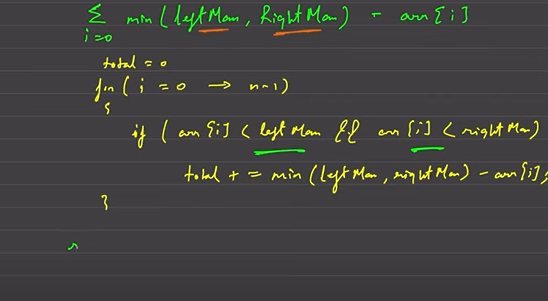 ∑ i=0 min(leftMax, RightMax) - arr[i]
total = 0
for( i = 0 → n-1)
{
if ( arr[i] < leftMax && arr[i] < rightMax)
total + = min(leftMax, rightMax) - arr[i];
}